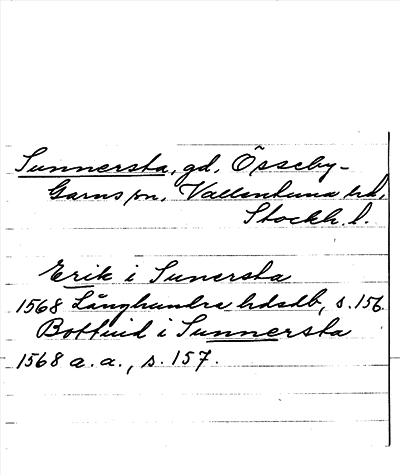 Sunnersta, gd, Össeby-
Garns sn, Vallentuna hd,
Stockh. l.
Erik i Sunersta
1568 Långhundra hdsdb, s. 156
Bottuid i Sunnersta
1568 a. a., s. 157.